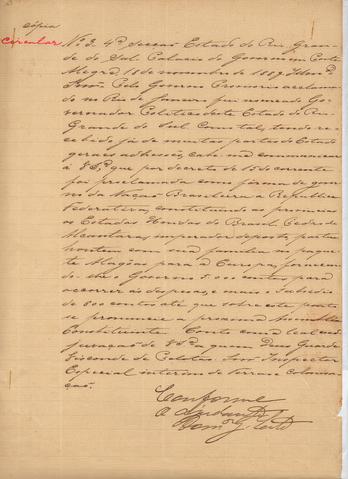 cópia
Circular
Nº 3. 4ª Secção Estado do Rio Gran-
de do Sul Palacio do Governo em Porto
Alegre, 18 de novembro de 1889. Illmo Sr.
Pelo Governo Provisorio acclama-
do no Rio de Janeiro fui nomeado Go-
vernador Politico deste Estado do Rio
Grande do Sul Como tal, tendo re-
cebido já de muitas partes do Estado
geraes adhesões, cabe-me communicar
á V.Sª que por decreto de 15 do corrente
foi proclamada como fórma de gover-
no da Nação Brasileira a Republica
Federativa, constituindo as provincias
os Estados Unidos do Brasil. Pedro de
Alcantara, imperador deposto, partiu
hontem com sua familia no paque-
te Alagôas para a Europa, fornecen-
do-lhe o Governo 5.000 contos para
occorrer ás despesas, e mais o subsidio
de 800 contos até que sobre este ponto
se pronuncie a proxima Assembléa
Constituinte. Conto com a leal coad-
juvação de V.Sª a quem Deus Guarde
Visconde de Pelotas. Snr. Inspector
Especial interino de Terras e Colonisa-
ção.
Conforme
O Ajudante